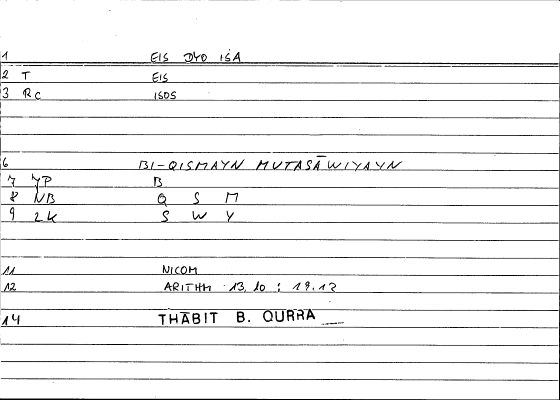 1 EIS DYO ISA
2 T EIS
3 RC ISOS
6 BI-QISMAYN MUTASĀWIYAYN
7 YP B
8 NB Q S M
9 2K S W Y
11 NICOM
12 ARITHM 13.10 : 19.12
14 THĀBIT B. QURRA